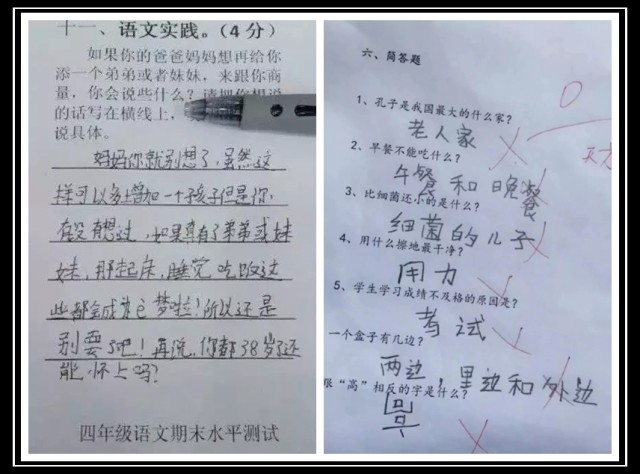 十一、语文实践。（4分）
如果你的爸爸妈妈想再给你
添一个弟弟或者妹妹，来跟你商
量，你会说些什么？请把你想说
的话写在横线上，
说具体。
妈妈你就别想了，虽然这
样可以多增加一个孩子但是你
有没有想过，如果真有了弟弟或妹
妹，那起床，睡觉吃饭这
些都会成为亡梦啦！所以还是
别要了吧！再说，你都38岁了还
能怀上吗？
四年级语文期末水平测试
六、简答题
0
1、孔子是我国最大的什么家？
老人家
2、早餐不能吃什么？
午餐和晚餐
3、比细菌还小的是什么？
细菌的儿子
4、用什么擦地最干净？
用力
5、学生学习成绩不及格的原因是？
考试
一个盒子有几边？
两边，里边和外边
跟“高”相反的字是什么？